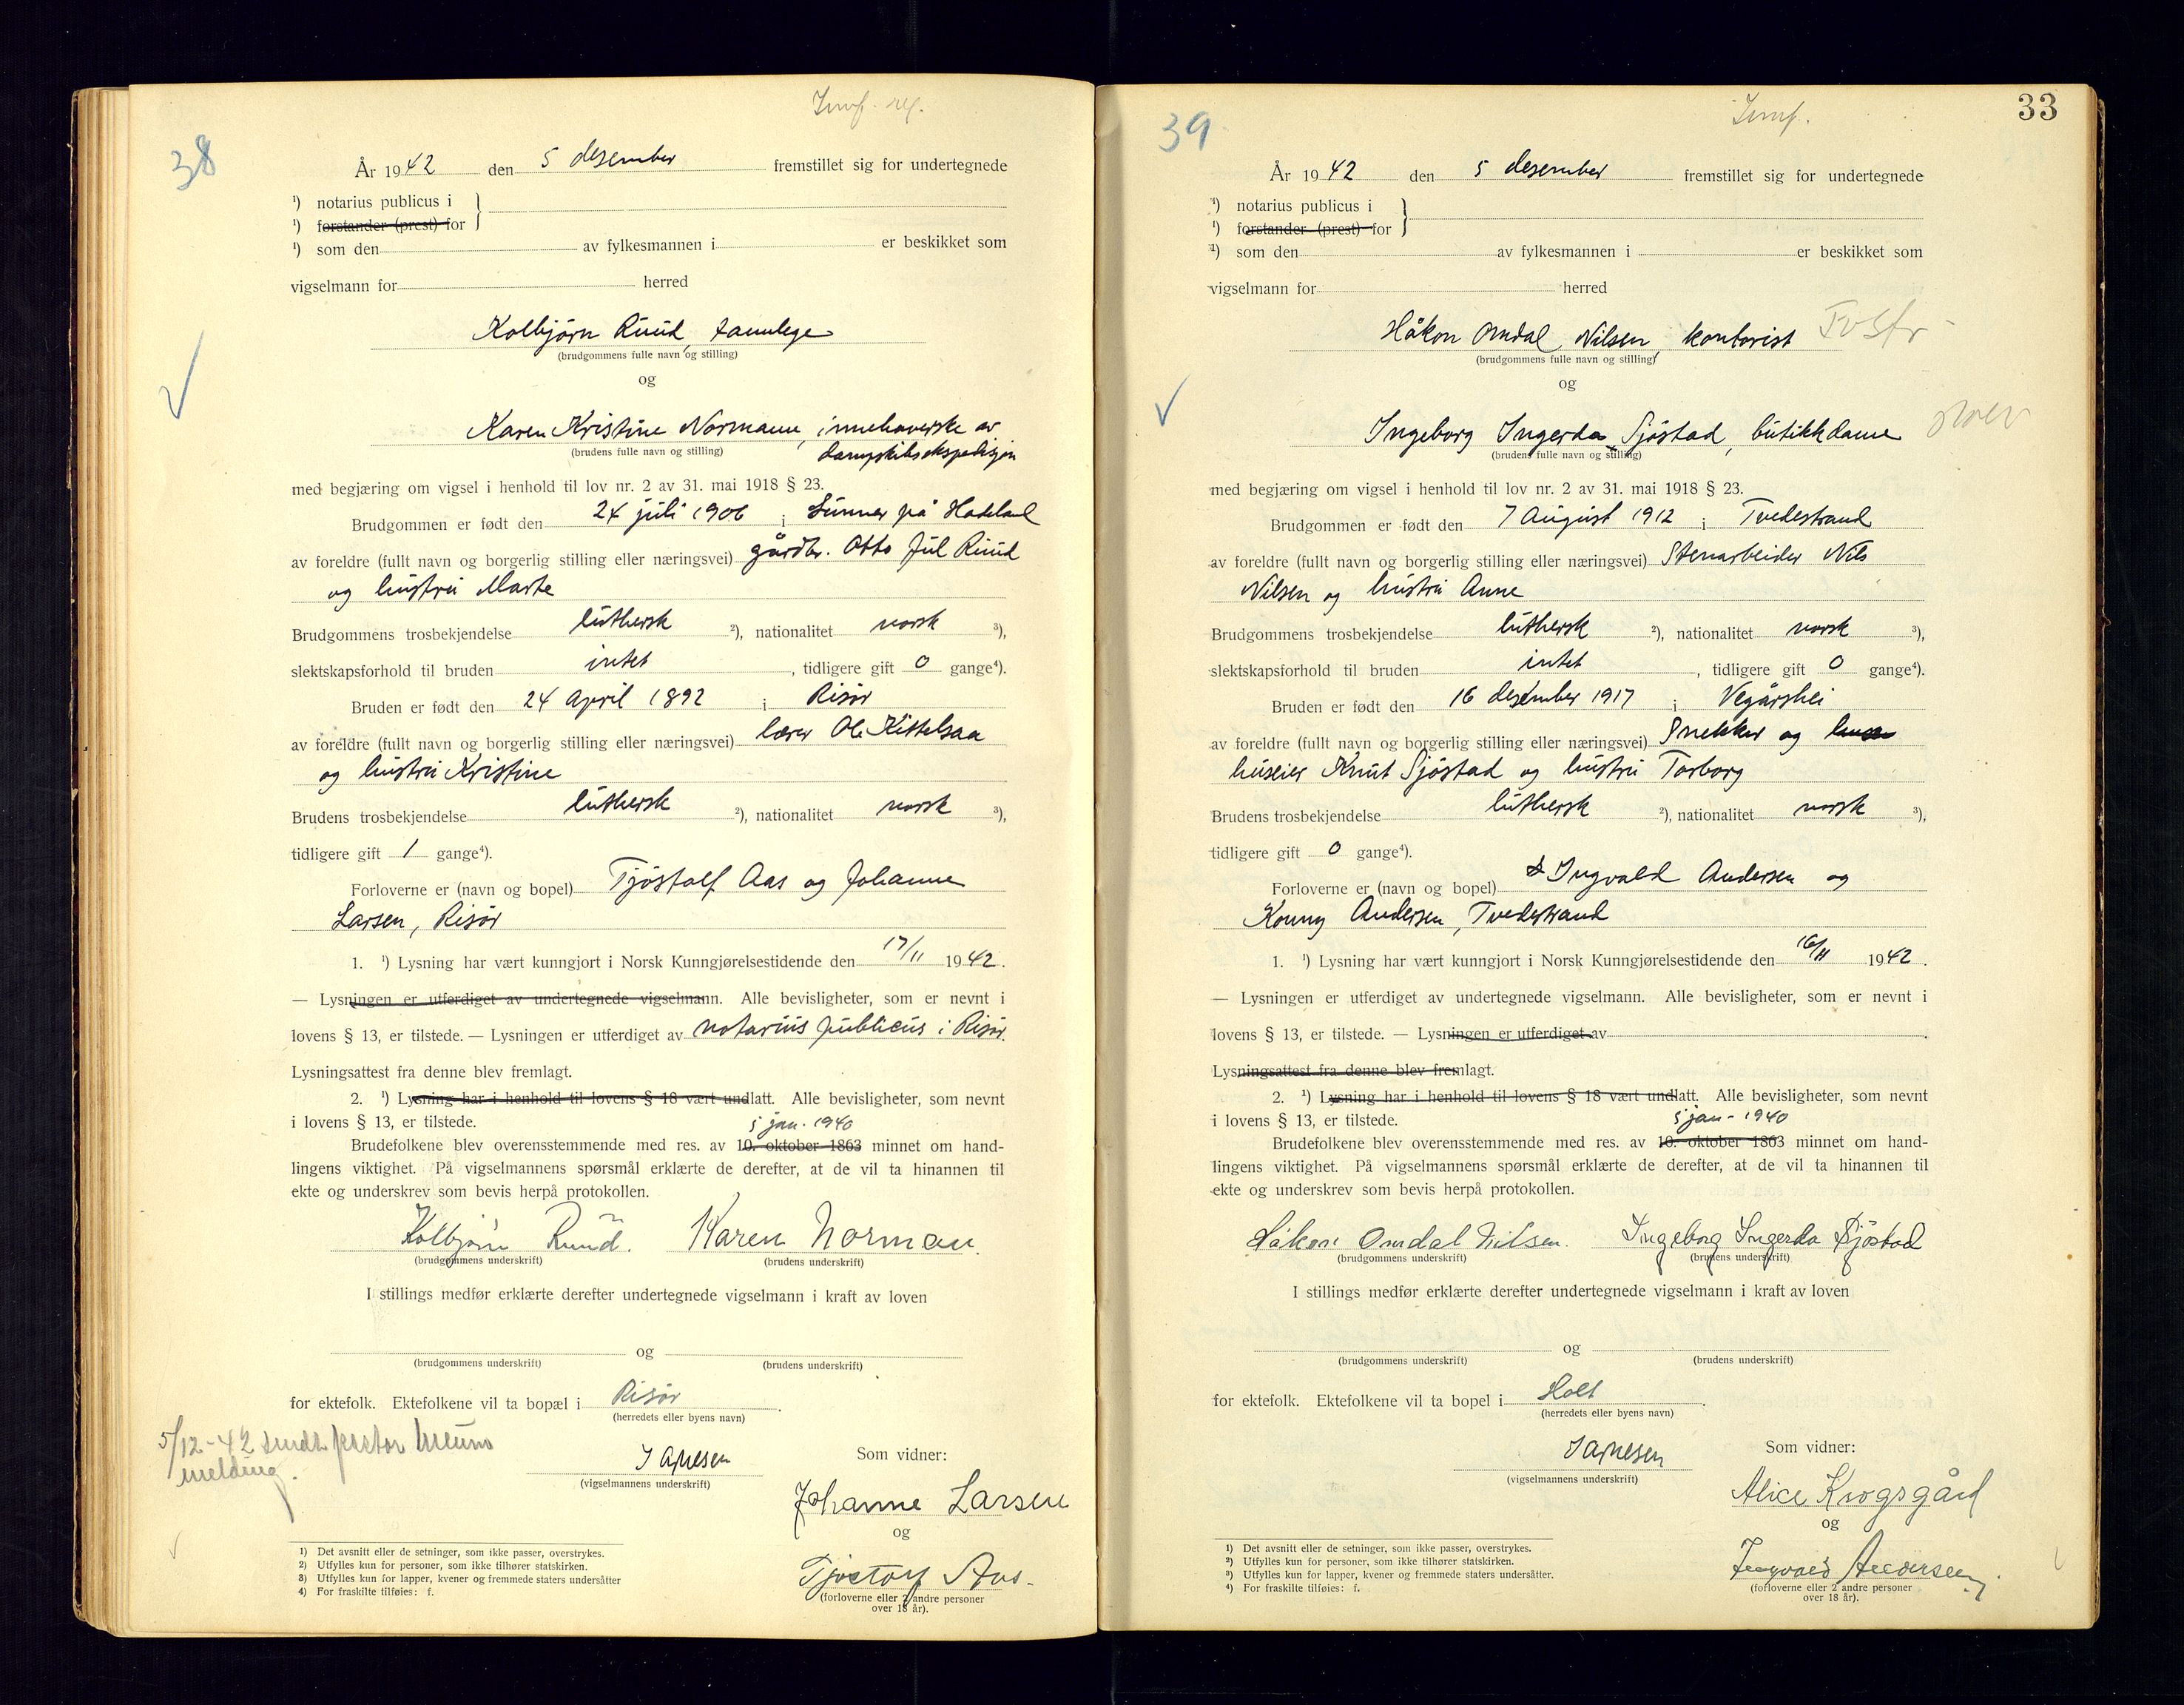 38
År 1942 den 5 desember fremstillet sig for undertegnede
¹) notarius publicus i }
¹) forstander (prest) for
¹) som den av fylkesmannen i er beskikket som
vigselmann for herred
Kolbjörn Ruud, tannlege
(brudgommens fulle navn og stilling)
og
Karen Kristine Normann, innehaverske av
dampskibsekspedisjon
(brudens fulle navn og stilling)
med begjæring om vigsel i henhold til lov nr. 2 av 31. mai 1918 § 23.
Brudgommen er født den 24 juli 1906 i Lunner på Hadeland
av foreldre (fullt navn og borgerlig stilling eller næringsvei) gårdbr. Otto Jul Ruud
og hustru Marte
Brudgommens trosbekjendelse luthersk ²), nationalitet norsk ³),
slektskapsforhold til bruden intet, tidligere gift 0 gange⁴).
Bruden er født den 24 april 1892 i Risör
av foreldre (fullt navn og borgerlig stilling eller næringsvei) lærer Ole Kittelsaa
og hustru Kristine
Brudens trosbekjendelse luthersk ²), nationalitet norsk ³),
tidligere gift 1 gange⁴).
Forloverne er (navn og bopel) Tjöstolf Aas og Johanne
Larsen, Risör
1. ¹) Lysning har vært kunngjort i Norsk Kunngjørelsestidende den 17/11 1942.
— Lysningen er utferdiget av undertegnede vigselmann. Alle bevisligheter, som er nevnt i
lovens § 13, er tilstede. — Lysningen er utferdiget av notarius publicus i Risör.
Lysningsattest fra denne blev fremlagt.
2. ¹) Lysning har i henhold til lovens § 18 vært undlatt. Alle bevisligheter, som nevnt
i lovens § 13, er tilstede.
5 jan. 1940
Brudefolkene blev overensstemmende med res. av 10. oktober 1863 minnet om hand-
lingens viktighet. På vigselmannens spørsmål erklærte de derefter, at de vil ta hinannen til
ekte og underskrev som bevis herpå protokollen.
Kolbjörn Ruud. Karen Norman.
(brudgommens underskrift) (brudens underskrift)
I stillings medfør erklærte derefter undertegnede vigselmann i kraft av loven
og
(brudgommens underskrift) (brudens underskrift)
for ektefolk. Ektefolkene vil ta bopæl i Risör.
(herredets eller byens navn)
5/12-42 sendt pastor
melding.
(vigselmannens underskrift)
Som vidner:
Johanne Larsen
og
Tjostolf Aas.
(forloverne eller 2 andre personer
over 18 år).
1) Det avsnitt eller de setninger, som ikke passer, overstrykes.
2) Utfylles kun for personer, som ikke tilhører statskirken.
3) Utfylles kun for lapper, kvener og fremmede staters undersåtter
4) For fraskilte tilføies: f.
39
33
År 1942 den 5 desember fremstillet sig for undertegnede
¹) notarius publicus i }
¹) forstander (prest) for
¹) som den av fylkesmannen i er beskikket som
vigselmann for herred
Håkon Omdal Nilsen, kontorist
(brudgommens fulle navn og stilling)
og
Ingeborg Ingerda Sjöstad, butikkdame
(brudens fulle navn og stilling)
med begjæring om vigsel i henhold til lov nr. 2 av 31. mai 1918 § 23.
Brudgommen er født den 7 August 1912 i Tvedestrand
av foreldre (fullt navn og borgerlig stilling eller næringsvei) Stenarbeider Nils
Nilsen og hustru Anne
Brudgommens trosbekjendelse luthersk ²), nationalitet norsk ³),
slektskapsforhold til bruden intet, tidligere gift 0 gange⁴).
Bruden er født den 16 desember 1917 i Vegårshei
av foreldre (fullt navn og borgerlig stilling eller næringsvei) Snekker og
huseier Knut Sjöstad og hustru Torborg
Brudens trosbekjendelse luthersk ²), nationalitet norsk ³),
tidligere gift 0 gange⁴).
Forloverne er (navn og bopel) Ingvald Andersen og
Konny Andersen, Tvedestrand
1. ¹) Lysning har vært kunngjort i Norsk Kunngjørelsestidende den 16/11 1942.
— Lysningen er utferdiget av undertegnede vigselmann. Alle bevisligheter, som er nevnt i
lovens § 13, er tilstede. — Lysningen er utferdiget av
Lysningsattest fra denne blev fremlagt.
2. ¹) Lysning har i henhold til lovens § 18 vært undlatt. Alle bevisligheter, som nevnt
i lovens § 13, er tilstede.
5 jan - 1940
Brudefolkene blev overensstemmende med res. av 10. oktober 1863 minnet om hand-
lingens viktighet. På vigselmannens spørsmål erklærte de derefter, at de vil ta hinannen til
ekte og underskrev som bevis herpå protokollen.
Håkon Omdal Nilsen. Ingeborg Ingerda Sjöstad
(brudgommens underskrift) (brudens underskrift)
I stillings medfør erklærte derefter undertegnede vigselmann i kraft av loven
og
(brudgommens underskrift) (brudens underskrift)
for ektefolk. Ektefolkene vil ta bopel i Holt.
(herredets eller byens navn)
(vigselmannens underskrift)
Som vidner:
Alice Krogsgård
og
Ingvald Andersen
(forloverne eller 2 andre personer
over 18 år).
1) Det avsnitt eller de setninger, som ikke passer, overstrykes.
2) Utfylles kun for personer, som ikke tilhører statskirken.
3) Utfylles kun for lapper, kvener og fremmede staters undersåtter.
4) For fraskilte tilføies: f.